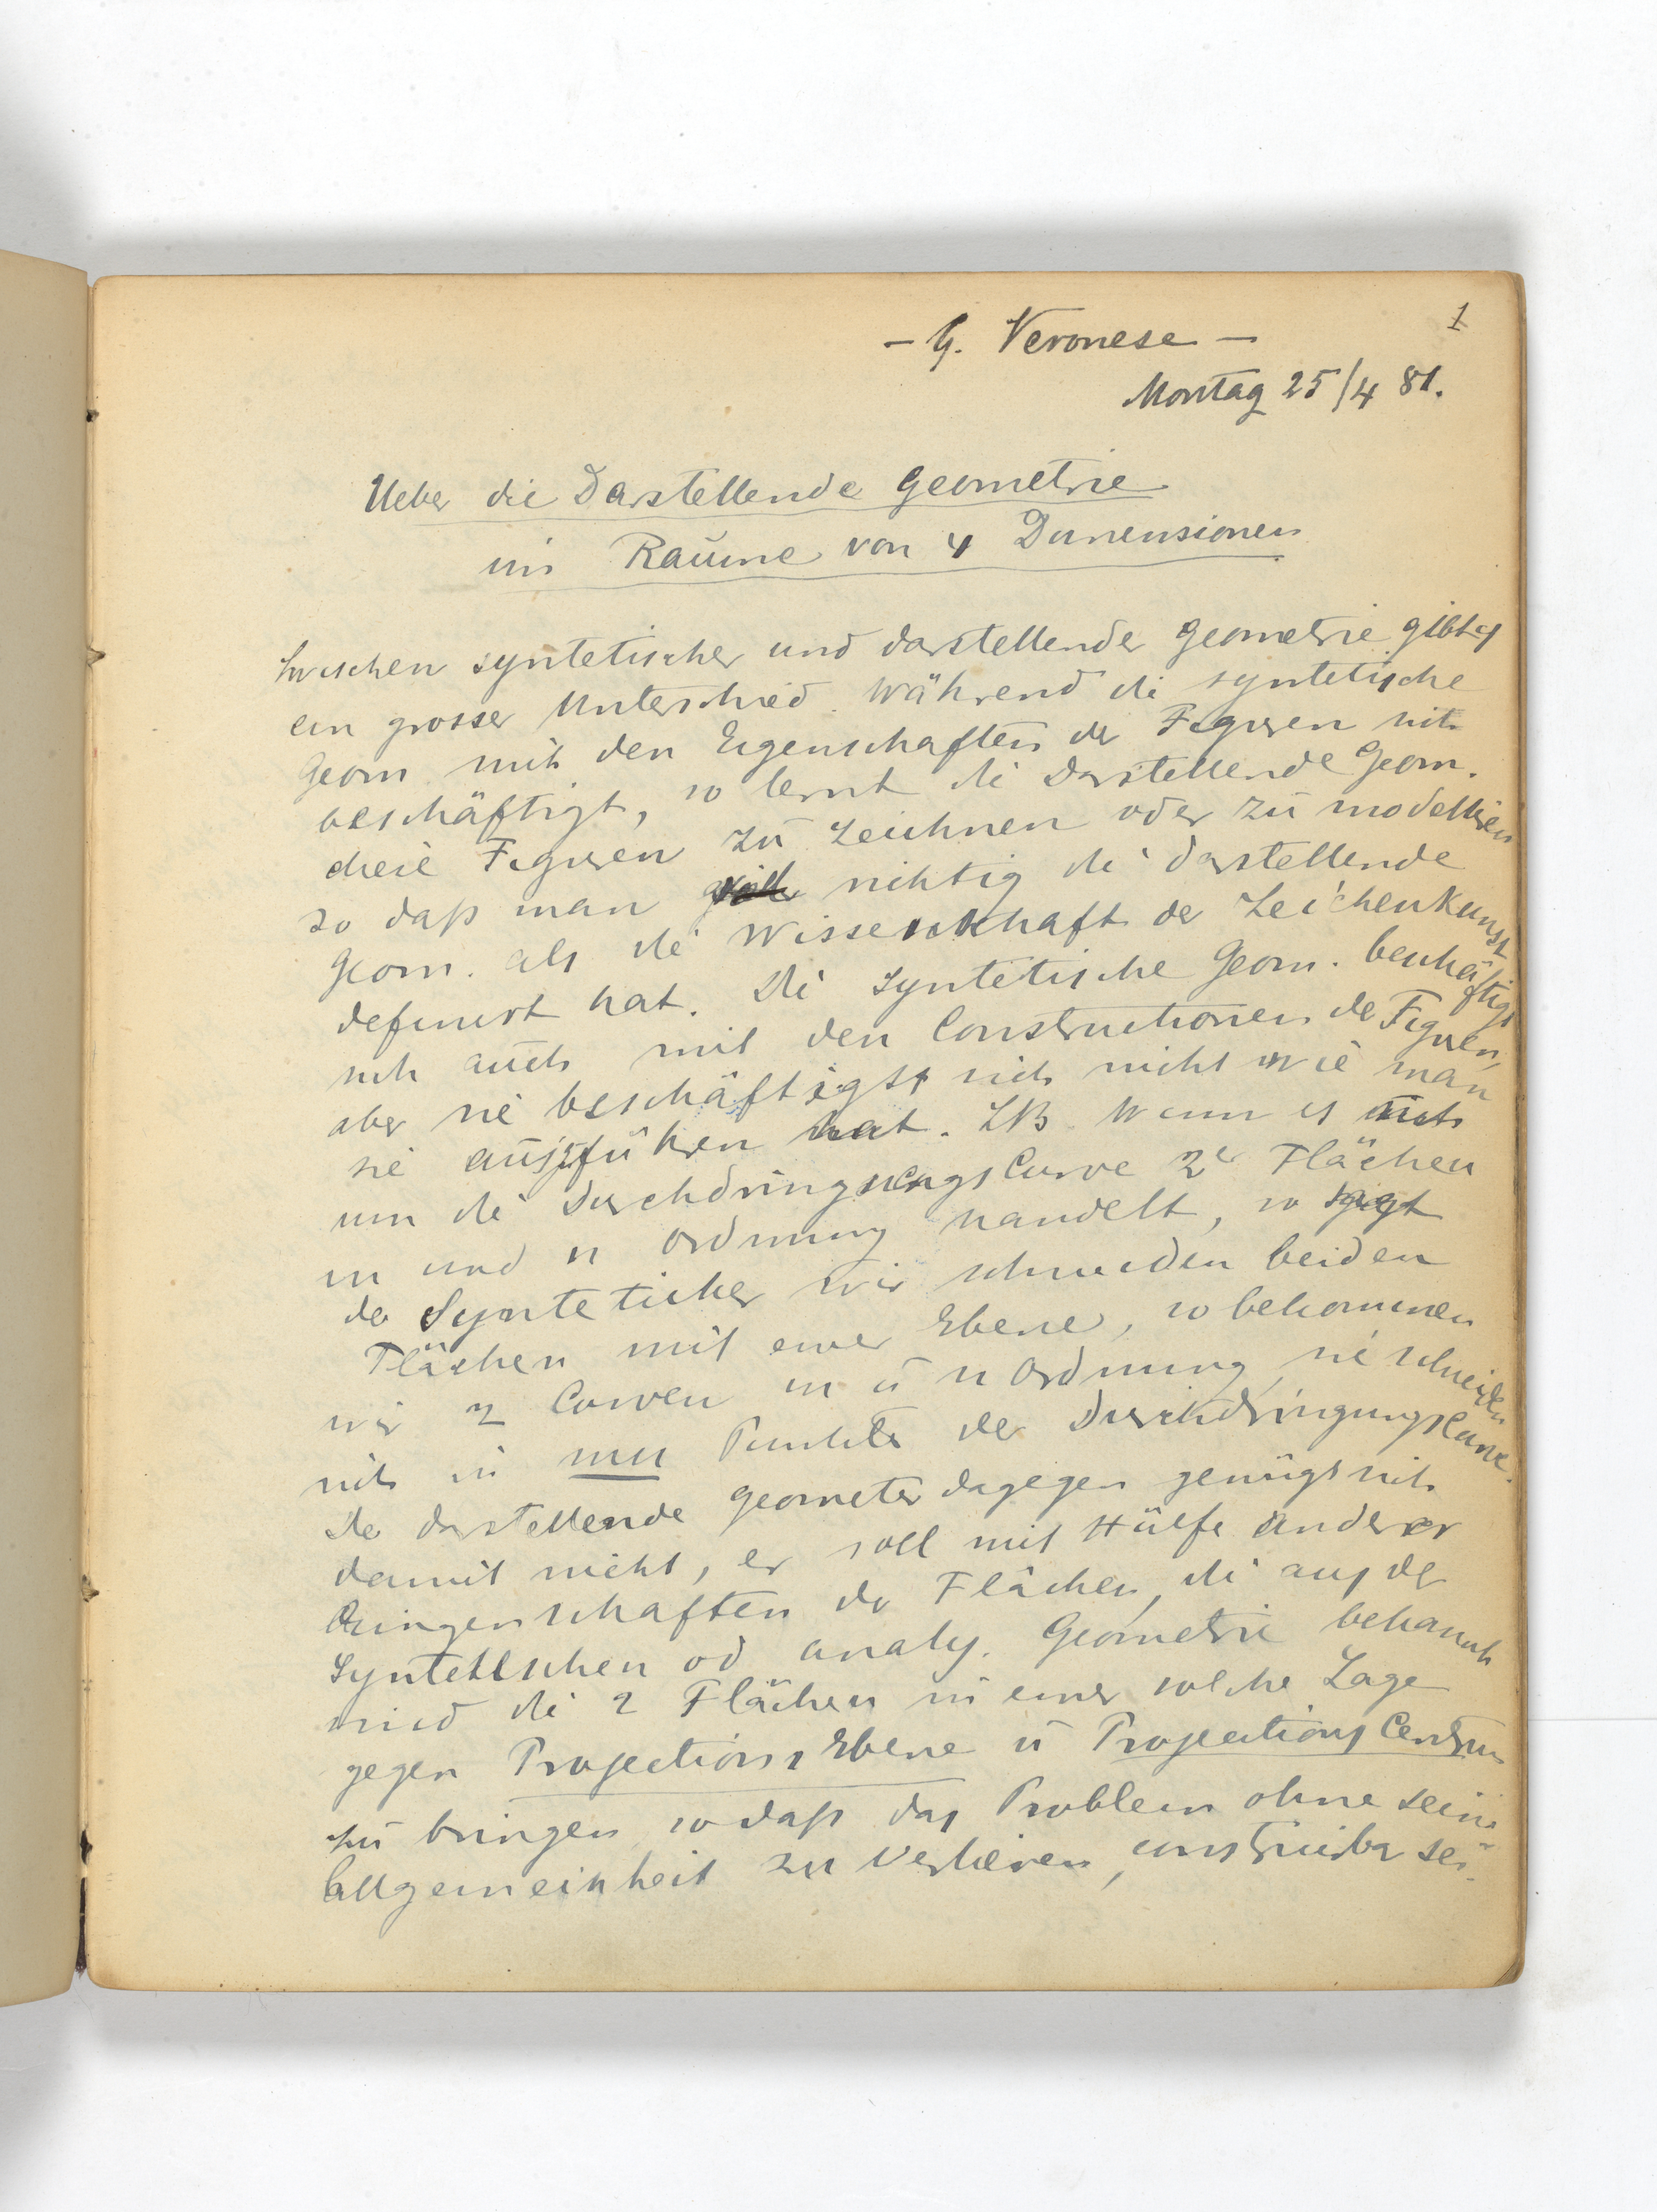 1
- G. Veronese -
Montag 25/4 81.
Ueber die Darstellende Geometrie
im Raume von 4 Dimensionen
Zwischen syntetischer und darstellender Geometrie gibt es
ein grosser Unterschied. Während die syntetische
Geom mit den Eigenschaften der Figuren sich
beschäftigt, so lernt die Darstellende Geom.
diese Figuren zu zeichnen oder zu modelliren
so daß man richtig die darstellende
Geom. als die Wissenschaft der Zeichenkunst
definirt hat. Die syntetische Geom. beschäftigt
sich auch mit den Constructionen der Figuren,
aber sie beschäftigt sich nicht wie man
sie auszuführen hat. ZB. Wenn es sich
um die Durchdringungs Curve 2er Flächen
m und n Ordnung handelt, so sagt
der Syntetiker wir schneiden beiden
Flächen mit einer Ebene, so bekommen
wir 2 Curven m u n Ordnung, sie schneiden
sich in mn Punkte der Durchdringungscurve.
Der darstellende Geometer dagegen genügt sich
damit nicht, er soll mit Hülfe anderer
Eigenschaften der Flächen, die aus der
Syntetischen od analy. Geometrie bekannt
sind die 2 Flächen in einer solche Lage
gegen Projections Ebene u Projections Centrum
zu bringen so daß das Problem ohne seine
Allgemeinheit zu verlieren, construirbar sei.